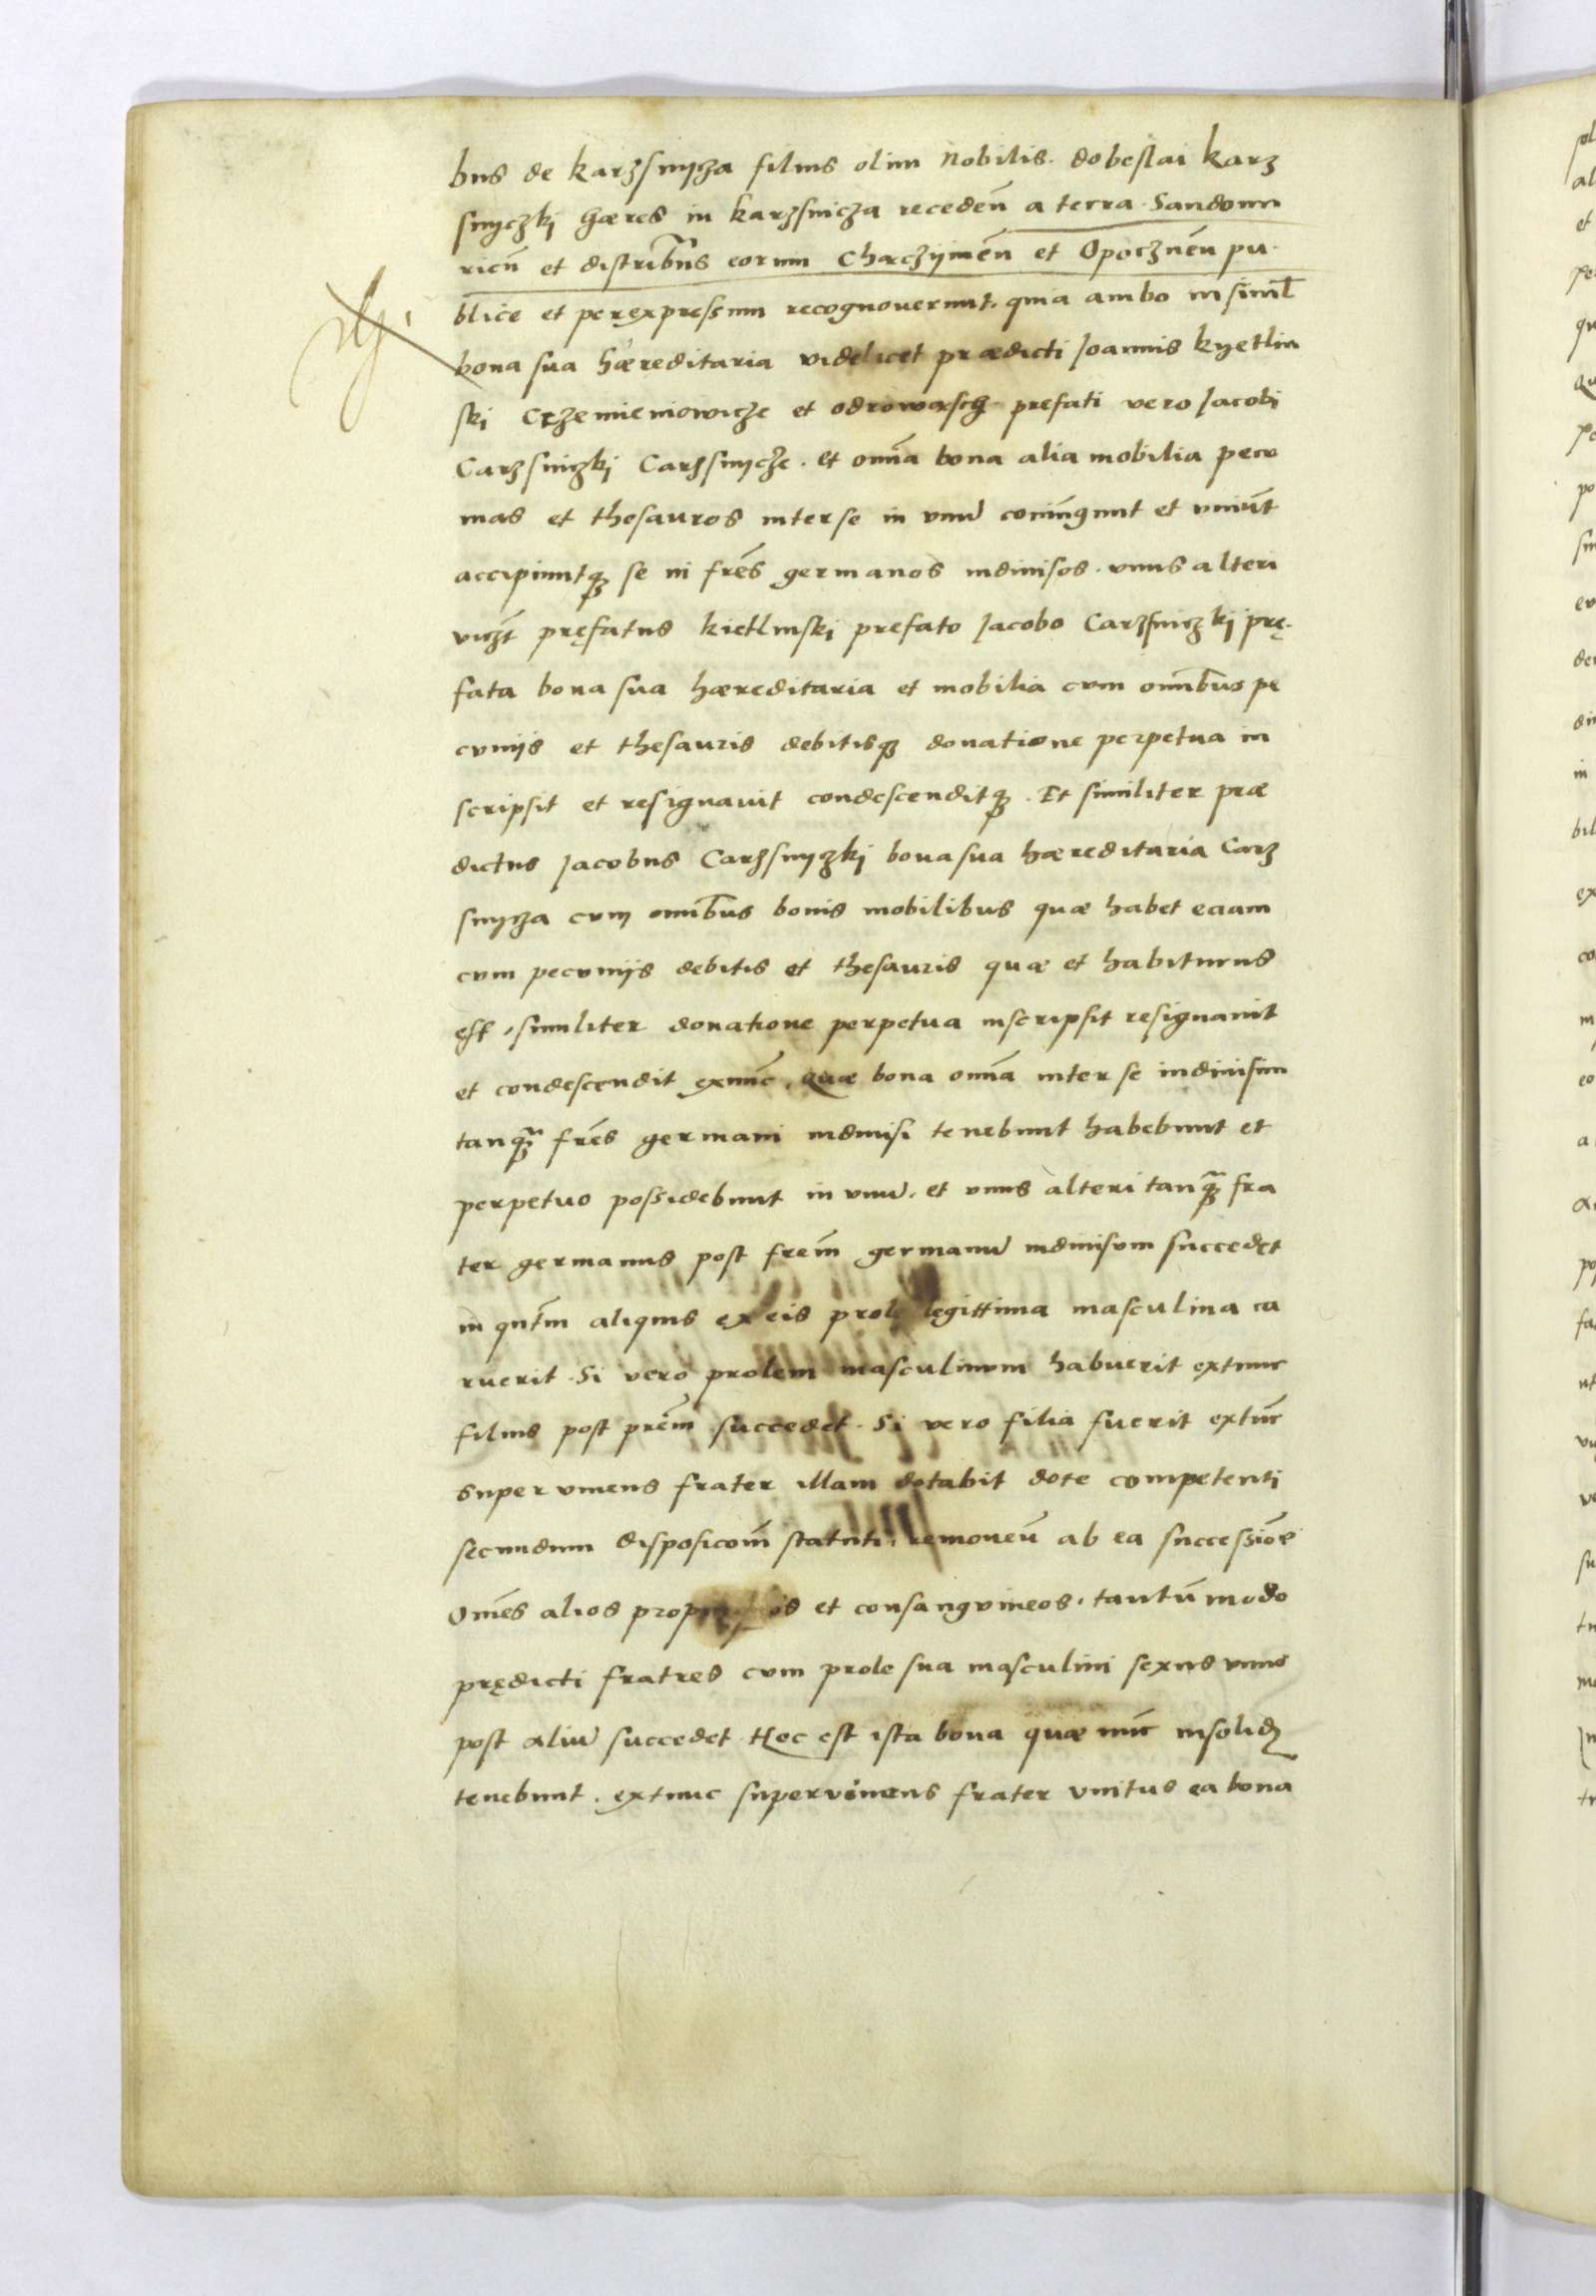 bus de karzsnycza filius olim Nobilis. dobeslai karz
snyczkj hæres in karzsnicza receden̄ a terra Sandomi
rien̄ et distrib̄us eorum Chæczijnen̄ et Opocznen̄ pu-
blice et per expressum recognouerunt. quia ambo insiml̄
bona sua hæreditaria videlicet prædicti Joannis kyetlin
ski Crzemieniowicze et odrowasch prefati vero Jacobi
Carzsniczkj Carzsnycze. et om̄a bona alia mobilia pecu
nias et thesauros inter se in vnū coniūgunt et vniūt
accipiuntqȝ se in fr̄es germanos indiuisos. vnus alteri
viczt̄ pręfatus kietlinski prefato Jacobo Carzsniczkij prę-
fata bona sua hæreditaria et mobilia cum omīb̄us pe
cunijs et thesauris debitisqȝ donatione perpetua in
scripsit et resignauit condescenditqȝ. Et similiter præ
dictus Jacobus Carzsnyczkj bona sua hæreditaria Carz
snycza cum omnib̄us bonis mobilibus quæ habet eciam
cum pecunijs debitis et thesauris quæ et habiturus
est, similiter donatione perpetua inscripsit resignauit
et condescendit exnūc, quæ bona om̄a inter se indiuisim
tanqȝ̄ fr̄es germani indiuisi tenebunt habebunt et
perpetuo possidebunt in vnū. et vnus alteri tanqȝ̄ fra
ter germanus post fr̄em germanū indiuisum succedet
in qn̄tm aliquis ex eis prole legittima masculina ca
ruerit. Si vero prolem masculinum habuerit extunc
filius post pr̄em succedet. Si vero filia fuerit extūc
superuiuens frater illam dotabit dote competenti
secundum disposicom̄ statuti, remouen̄ ab ea successiōe
om̄es alios et consanguineos, tantūmodo
prędicti fratres cum prole sua masculini sexus vnus
post aliū succedet Hoc est ista bona quæ nūc insolidȝ
tenebunt. extunc superviuens frater vnitus ea bona